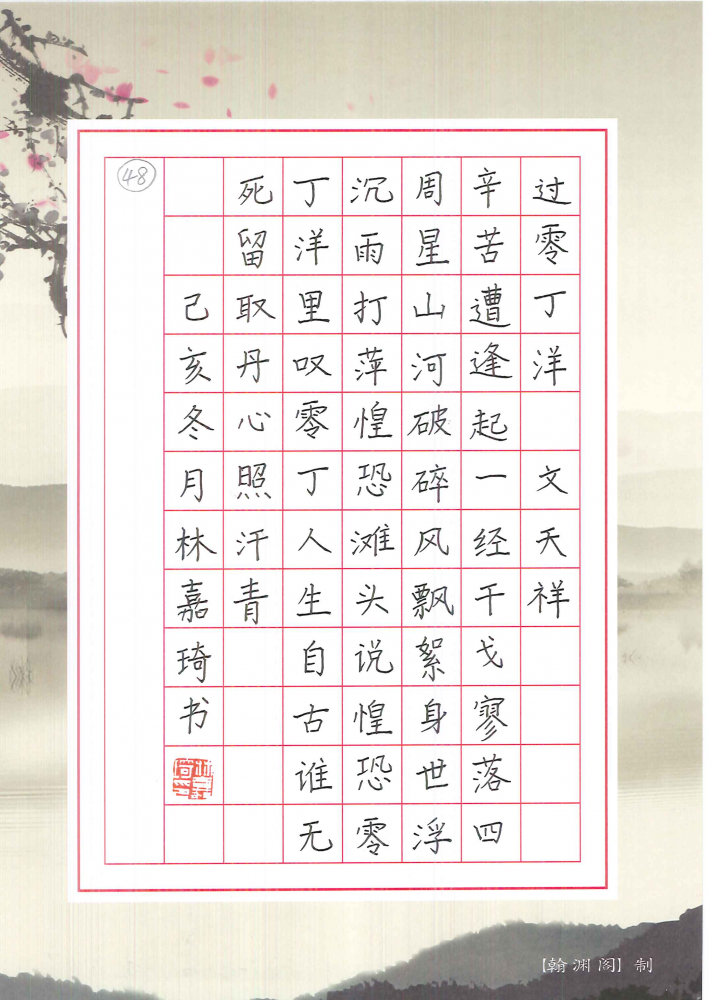 过零丁洋 文天祥
辛苦遭逢起一经干戈寥落四
周星山河破碎风飘絮身世浮
沉雨打萍惶恐滩头说惶恐零
丁洋里叹零丁人生自古谁无
死留取丹心照汗青
己亥冬月林嘉琦书
48
【翰渊阁】制